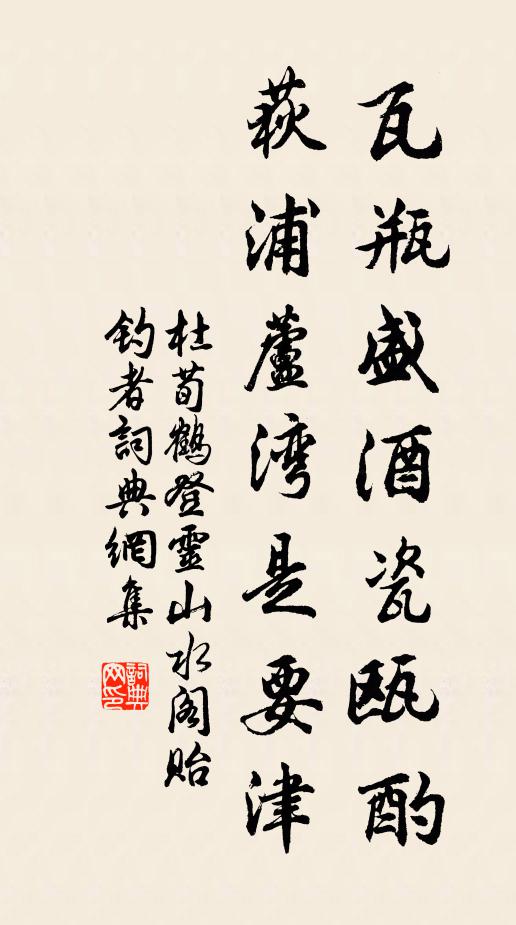 瓦瓶盛酒瓷瓯酌
萩浦蘆湾是要津
杜荀鶴登靈山水阁贻
钓者詞典網集
詞典网印